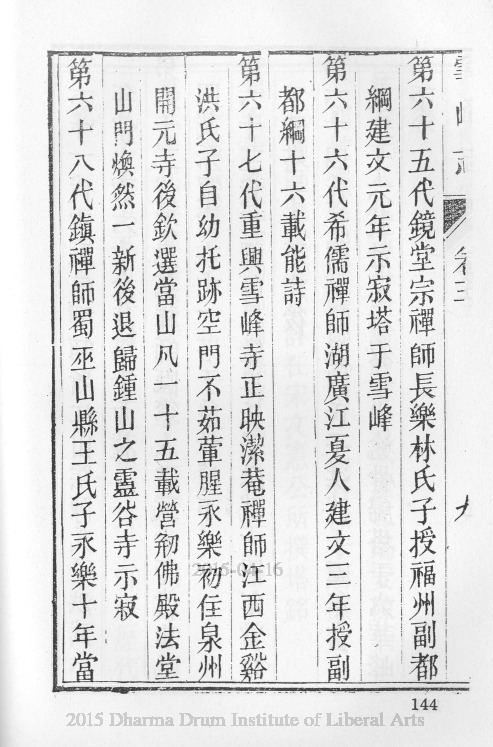 雪峰志
卷三
九
第六十五代鏡堂宗禪師長樂林氏子授福州副都
綱建文元年示寂塔于雪峰
第六十六代希儒禪師湖廣江夏人建文三年授副
都綱十六載能詩
第六十七代重興雪峰寺正映潔菴禪師江西金谿
洪氏子自幼托跡空門不茹葷腥永樂初住泉州
開元寺後欽選當山凡一十五載營剏佛殿法堂
山門煥然一新後退歸鍾山之靈谷寺示寂
第六十八代鎮禪師蜀巫山縣王氏子永樂十年當
2015-04-16
144
2015 Dharma Drum Institute of Liberal Arts